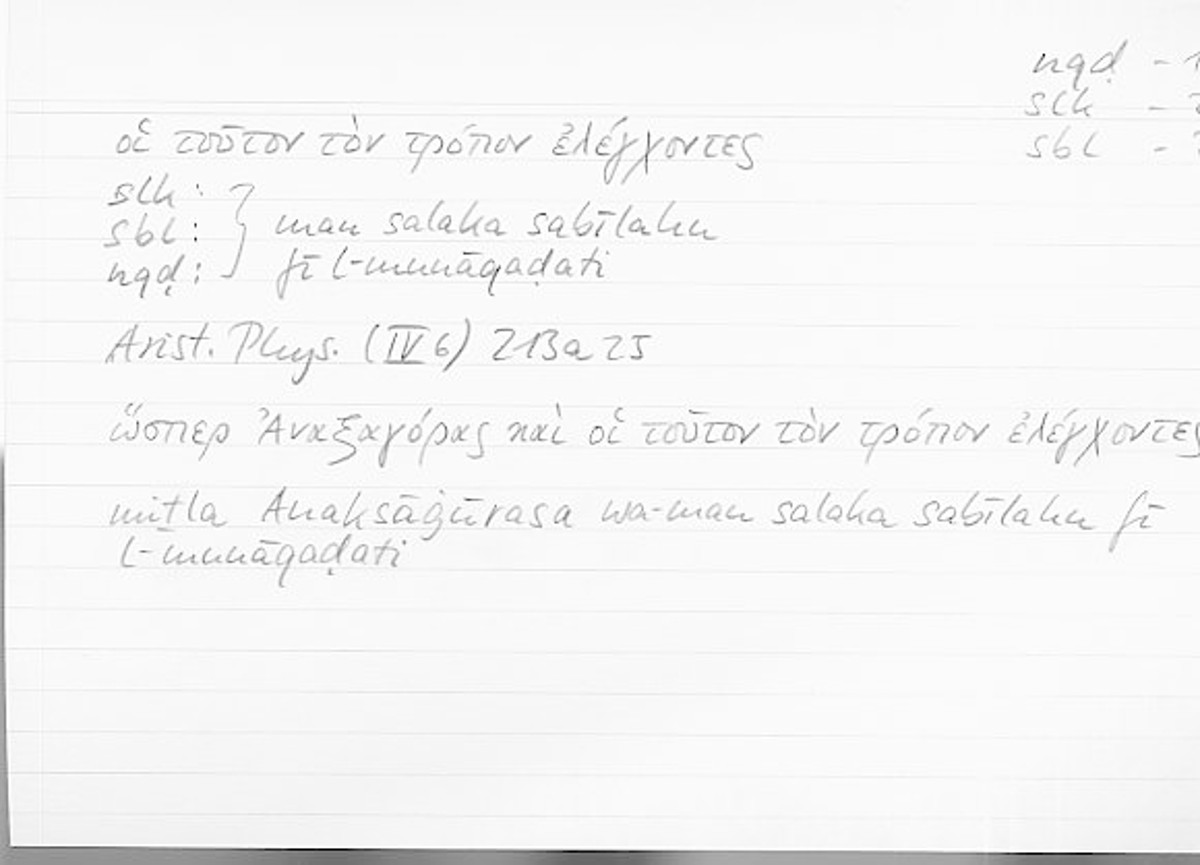 nqḍ -
slk -
sbl -
οἱ τοῦτον τὸν τρόπον ἐλέγχοντες
slk:
sbl: } man salaka sabīlahu
nqḍ: fī l-munāqaḍati
Arist. Phys. (IV 6) 213a25
ὥσπερ Ἀναξαγόρας καὶ οἱ τοῦτον τὸν τρόπον ἐλέγχοντες
miṯla Anaksāġūrasa wa-man salaka sabīlahu fī
l-munāqaḍati